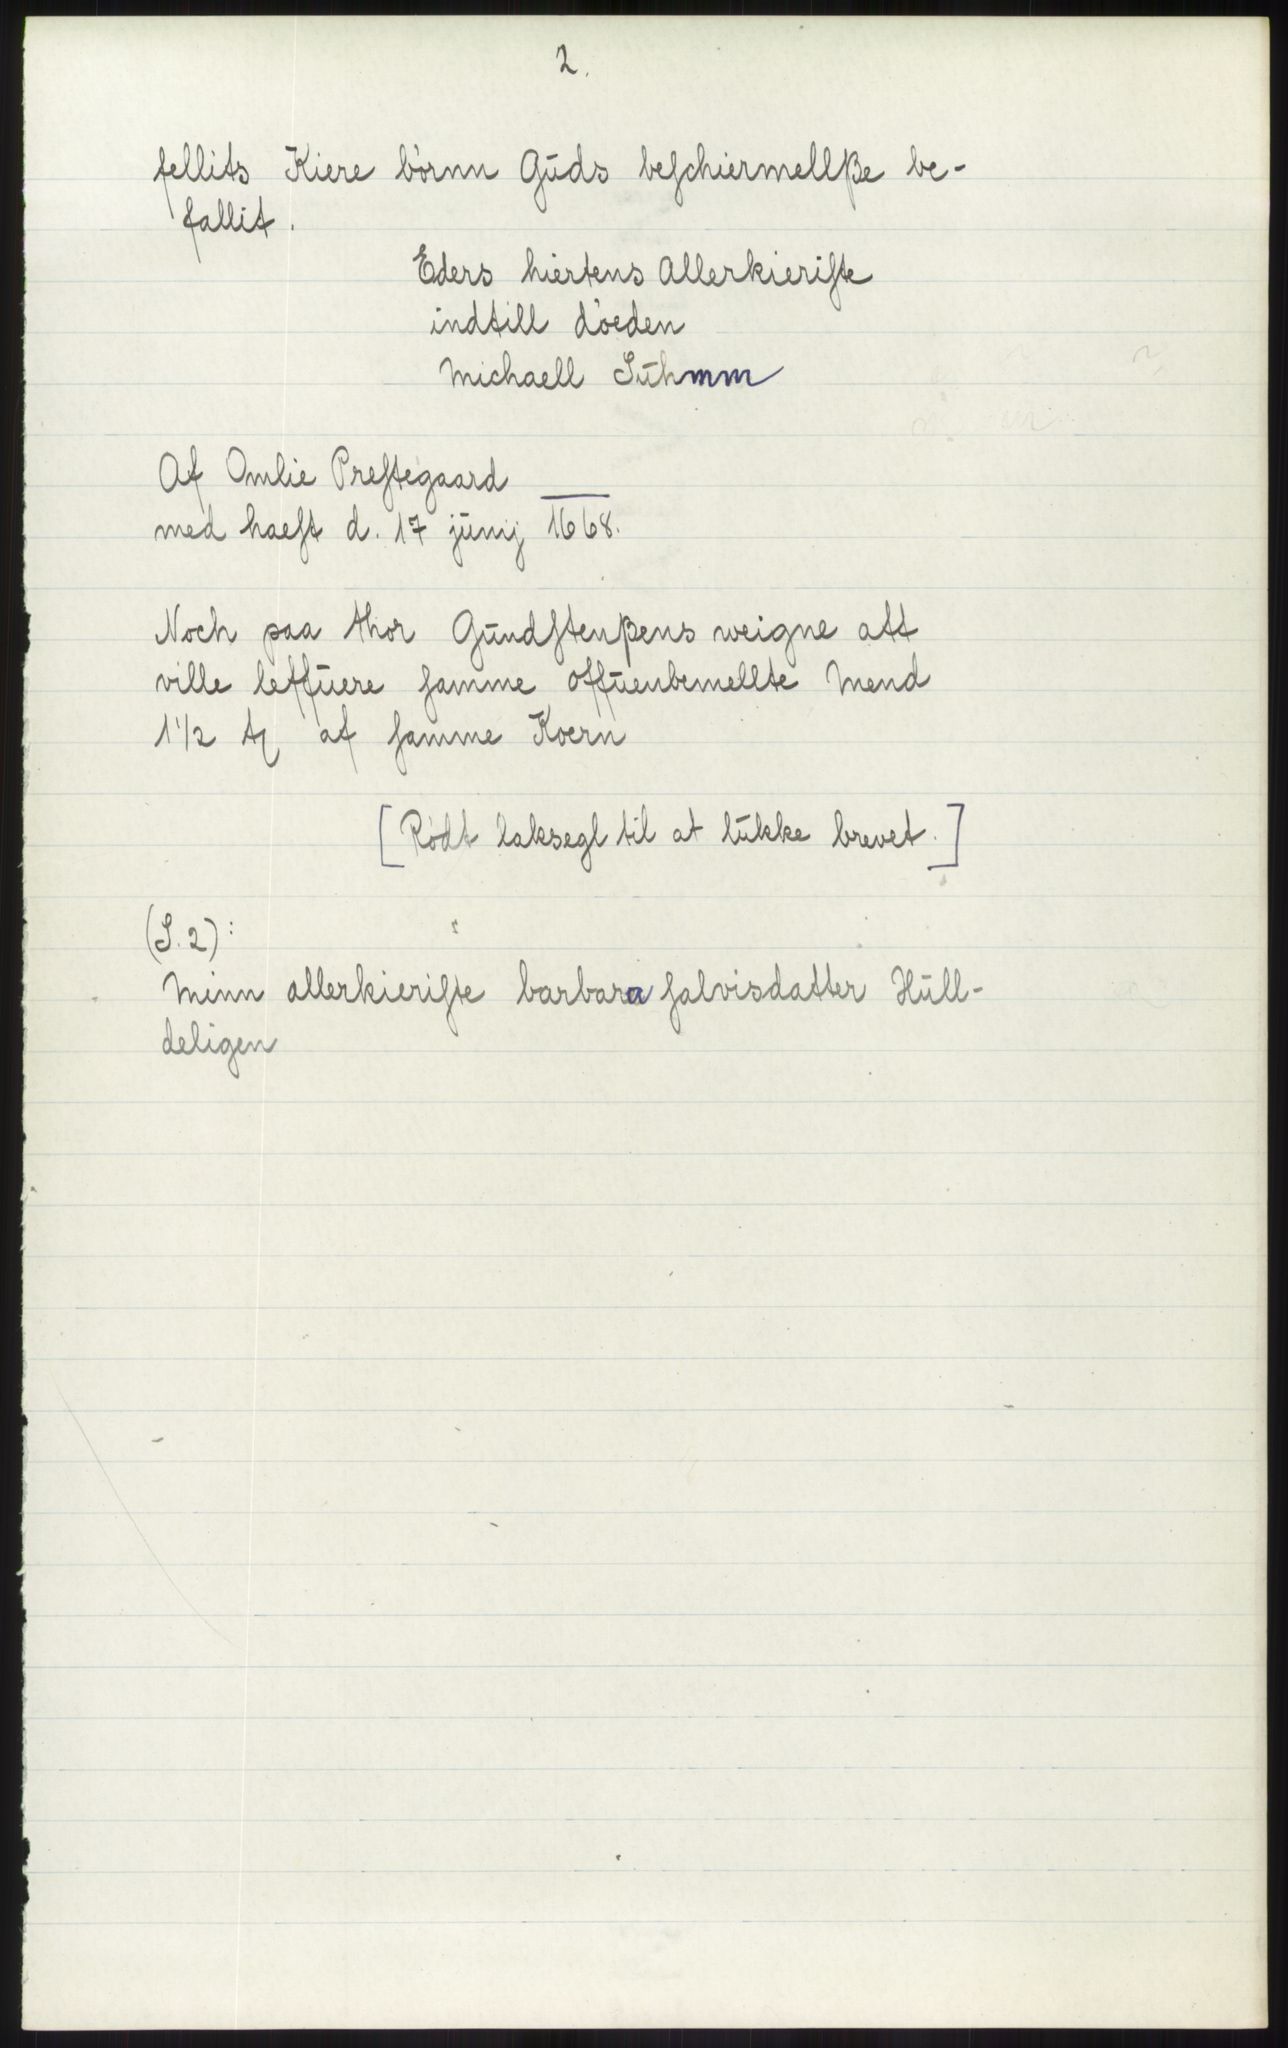 2.
fellits Kiere børnn Gūds beſchiermellße be-
fallit.
Eders hiertens Allerkieriſte
indtill døeden
Michaell Sūhmm
Af Omlie Preſtegaard
med haeſt d. 17 jūnij 1668.
Noch paa thor Gūndſtenßens weigne att
ville leffūere ſamme offūenbemellte Mend
1 1/2 tʒ af ſamme Koern
[Rødt laksegl til at lūkke brevet.]
(S. 2):
Minn allerkieriſte barbara ſalvisdatter Hūll-
deligen